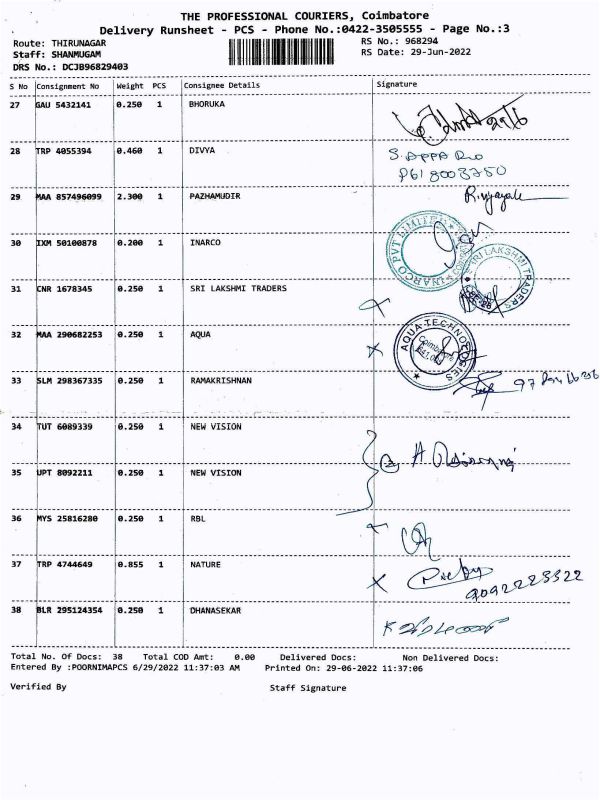 THE PROFESSIONAL COURIERS, Coimbatore
Delivery Runsheet - PCS - Phone No.:0422-3505555 - Page No.:3
Route: THIRUNAGAR RS No.: 968294
Staff: SHANMUGAM RS Date: 29-Jun-2022
DRS No.: DCJB96829403
S No Consignment No Weight PCS Consignee Details Signature
27 GAU 5432141 0.250 1 BHORUKA
28 TRP 4055394 0.460 1 DIVYA S. APPA Rao
29 MAA 857496099 2.300 1 PAZHAMUDIR
30 IXM 50100878 0.200 1 INARCO INARCO PVT LIMITED
31 CNR 1678345 0.250 1 SRI LAKSHMI TRADERS SRI LAKSHMI TRADERS
32 MAA 290682253 0.250 1 AQUA AQUA TECHNOLOGIES Coimbatore
33 SLM 298367335 0.250 1 RAMAKRISHNAN
34 TUT 6089339 0.250 1 NEW VISION
35 UPT 8092211 0.250 1 NEW VISION
36 MYS 25816280 0.250 1 RBL
37 TRP 4744649 0.855 1 NATURE
38 BLR 295124354 0.250 1 DHANASEKAR
Total No. Of Docs: 38 Total COD Amt: 0.00 Delivered Docs: Non Delivered Docs:
Entered By :POORNIMAPCS 6/29/2022 11:37:03 AM Printed On: 29-06-2022 11:37:06
Verified By Staff Signature